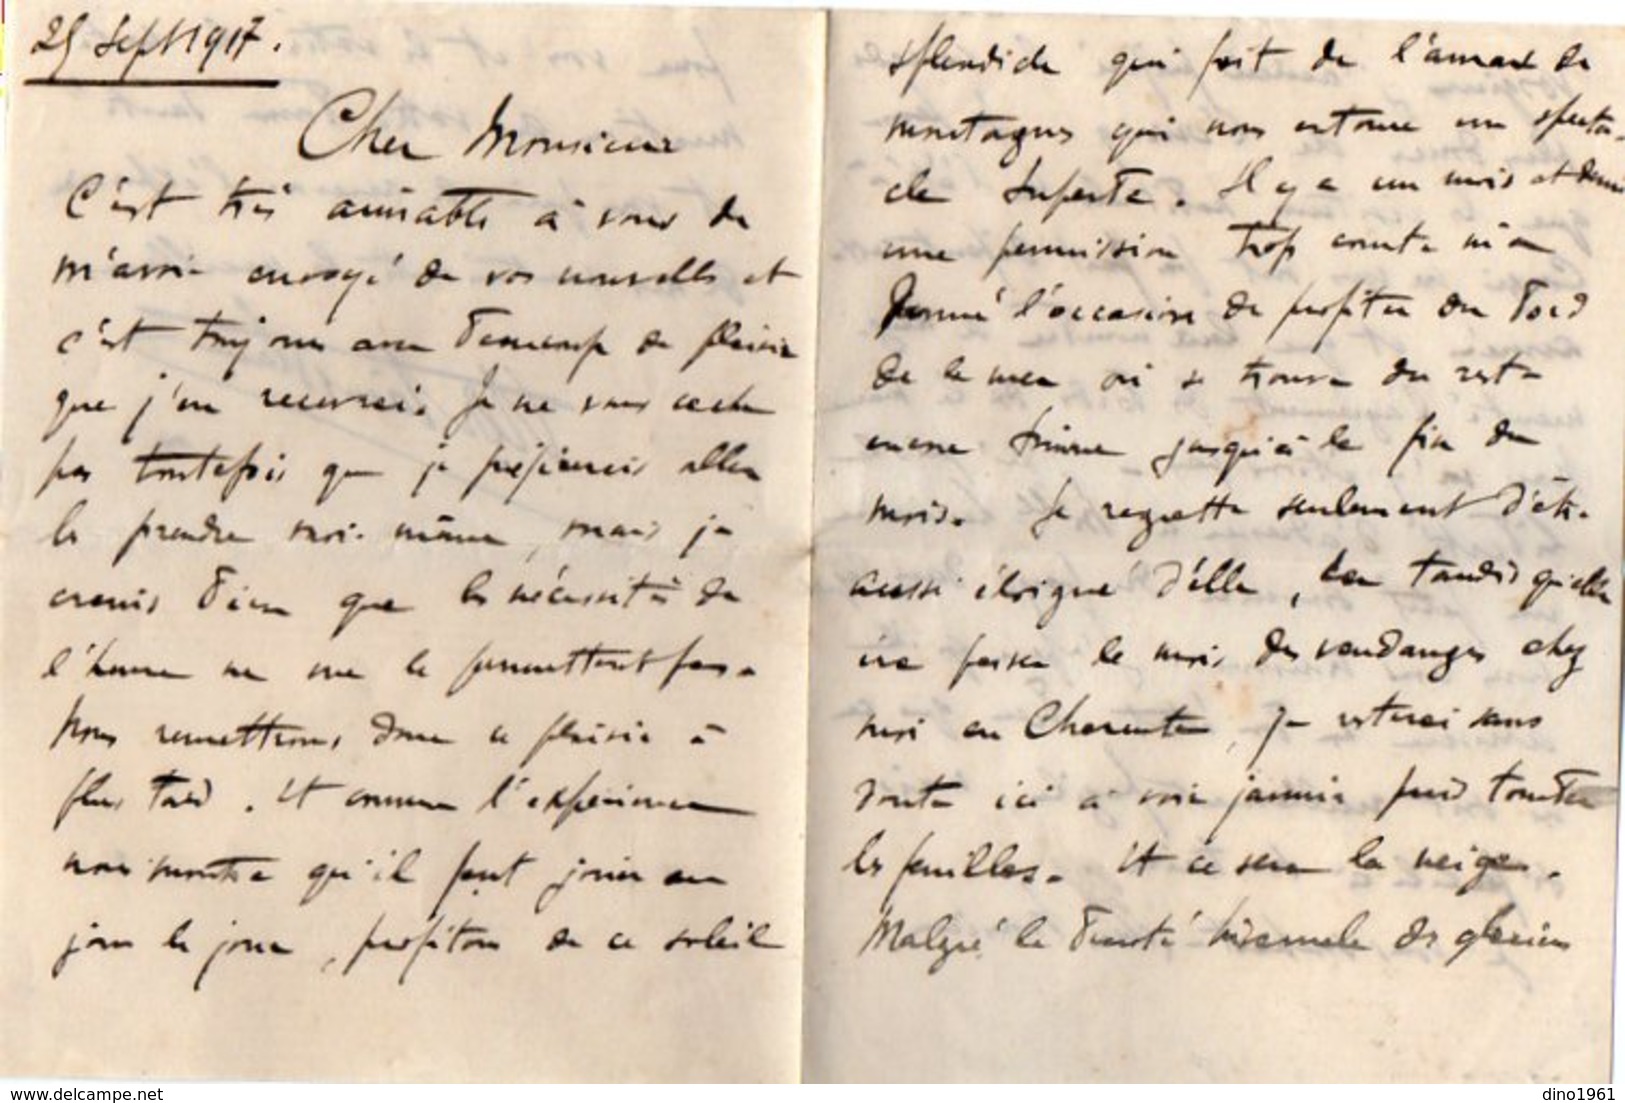 25 Sept 1917.
Cher Monsieur
C'est très aimable à vous de
m'avoir envoyé de vos nouvelles et
c'est toujours avec beaucoup de plaisir
que j'en recevrai. Je ne vous cache
pas toutefois que je préfèrerais aller
les prendre moi-même, mais je
crois bien que les nécessités de
l'heure ne me le permettent pas.
Nous remettrons donc ce plaisir à
plus tard. Et comme l'expérience
nous montre qu'il faut jouir au
jour le jour, profitons de ce soleil
splendide qui fait de l'amas de
montagnes qui nous entoure un specta-
cle superbe. Il y a un mois et demi
une permission trop courte m'a
donné l'occasion de profiter du bord
de la mer où se trouve du reste
encore Simone jusqu'à la fin du
mois. Je regrette seulement d'être
aussi éloigné d'elle, car tandis qu'elle
ira passer le mois des vendanges chez
moi en Charente, je resterai sans
doute ici à voir jaunir puis tomber
les feuilles. Et ce sera la neige.
Malgré la beauté hivernale des glaciers
dino1961